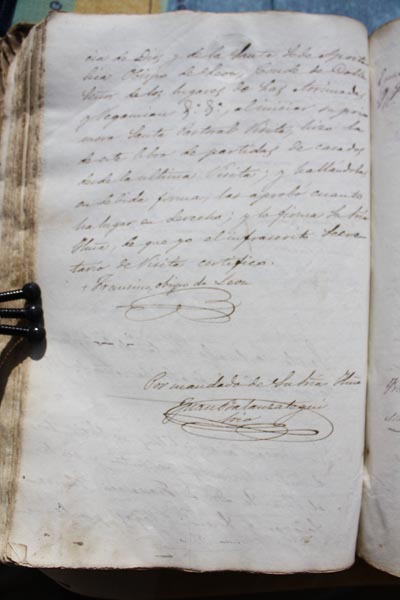 cia de Dios y de la Santa Sede Aposto
lica Obispo de Leon, Conde de Colle
Señor de los lugares de las Arrimadas
y Vegamian &.ª &.ª al iniciar su pri
mera Santa Pastoral Visita, hizo la
de este libro de partidas de casados
desde la ultima Visita; y hallandolas
en debida forma, las aprobó cuanto
ha lugar en derecho; y lo firma Su Sria
Ilma, de que yo el infrascrito Secre
tario de Visita certifico.
+ Francisco, obispo de Leon
Por mandado de Su Sria Ilma
Juan
Srio